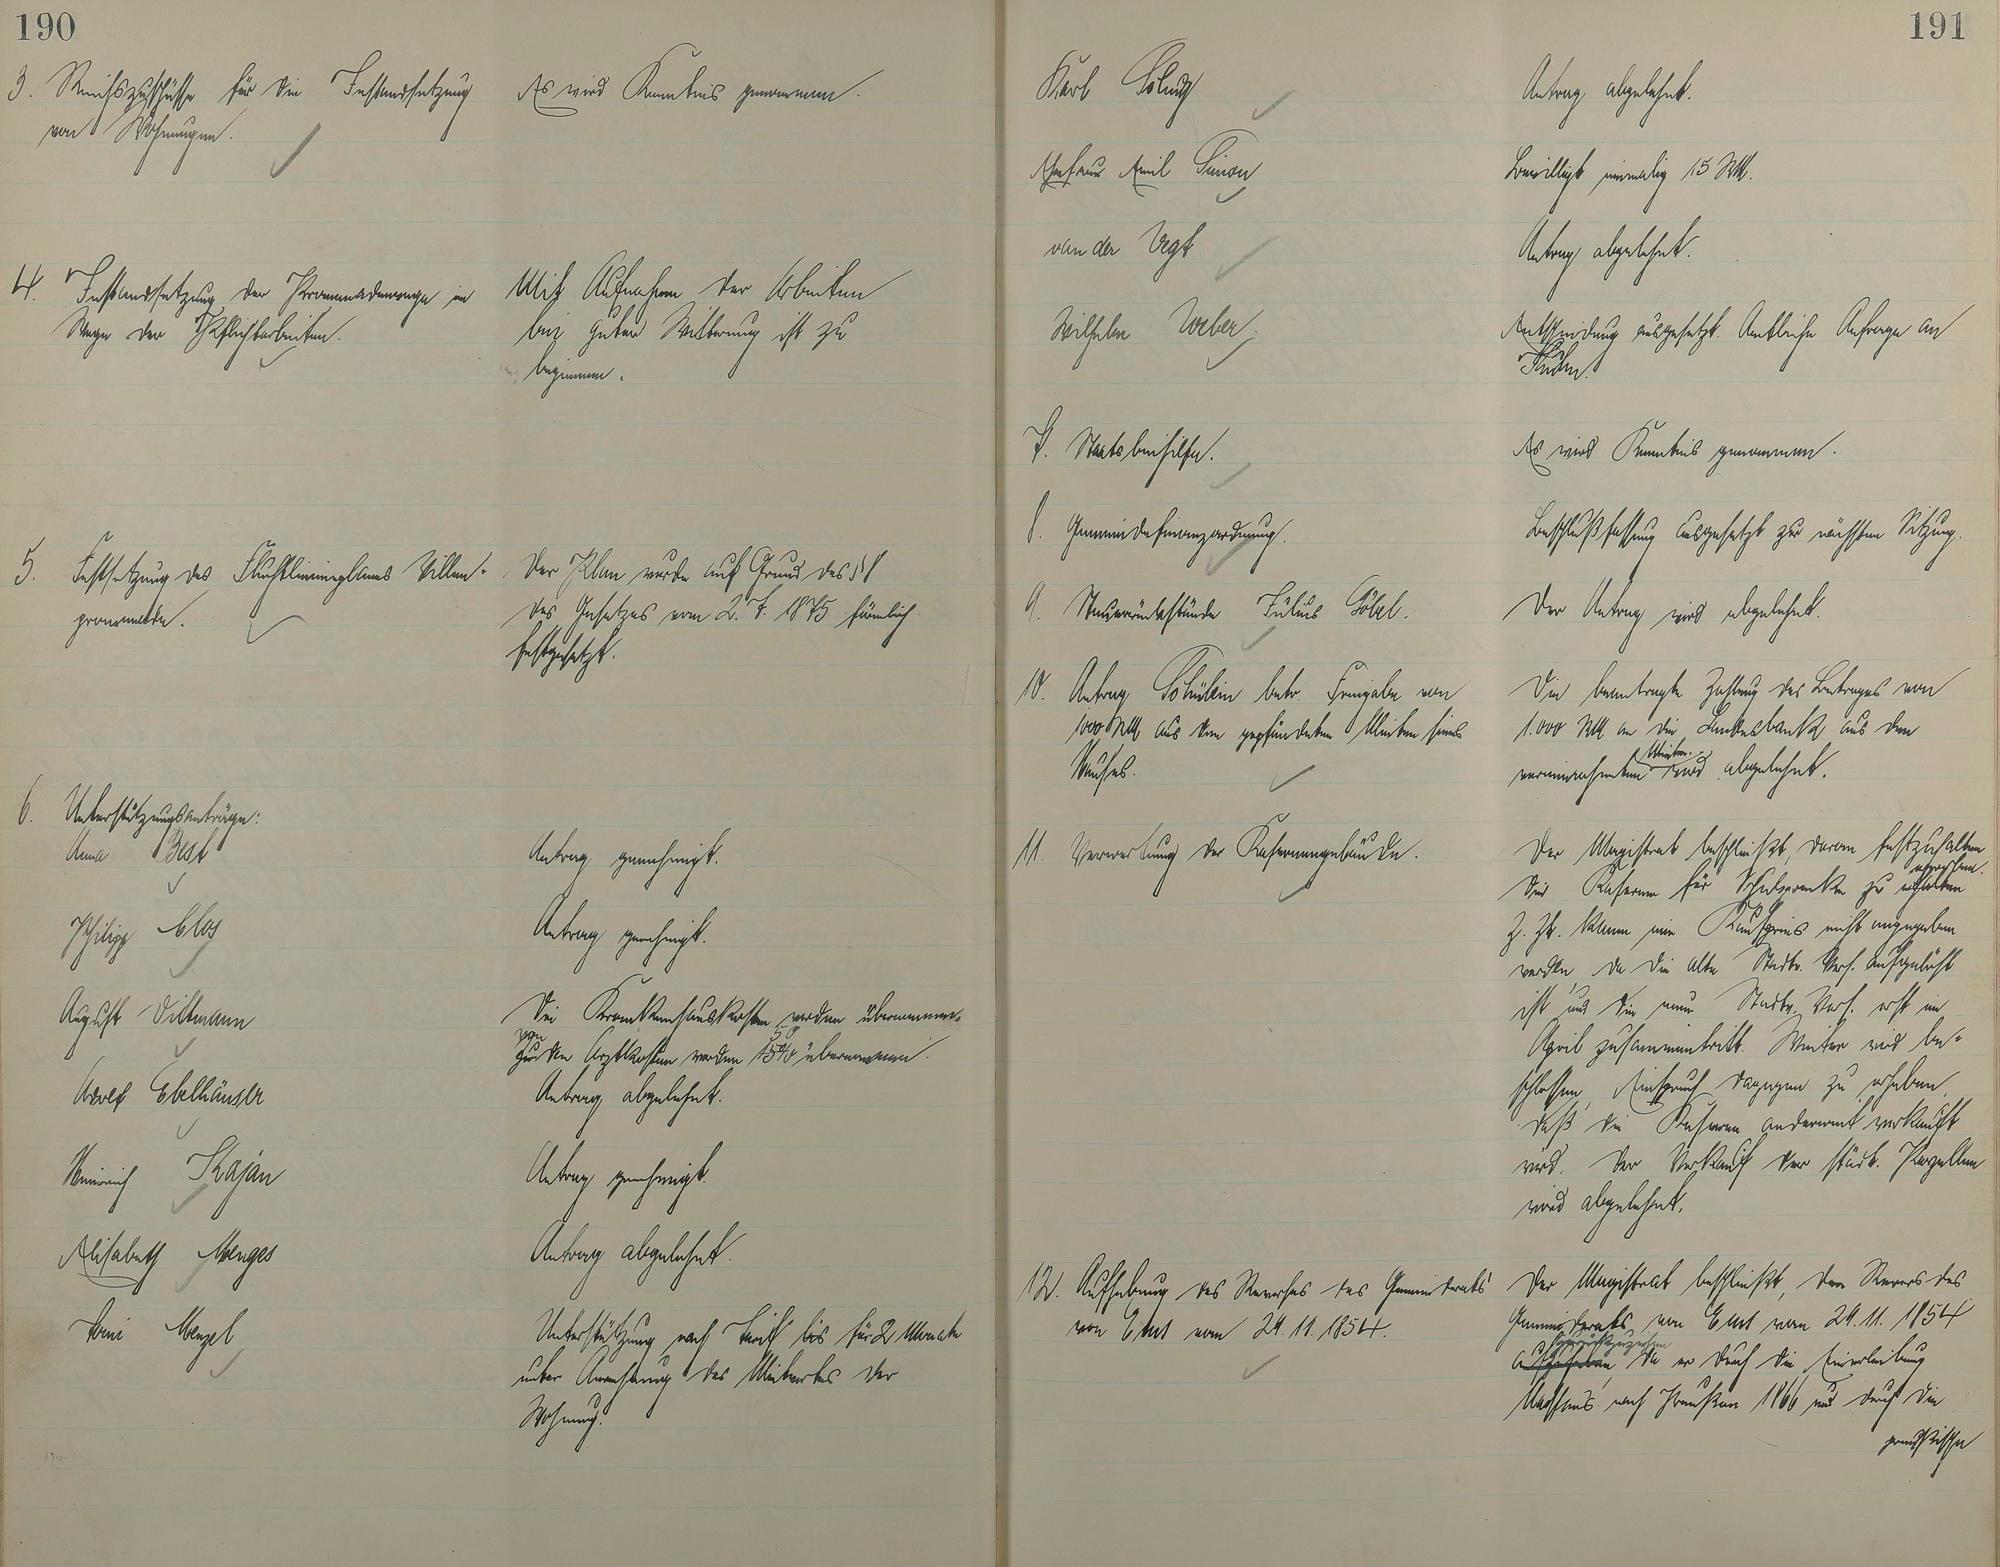 190
3. Reichszuschüsse für die Instandsetzung
von Wohnungen.
Es wird Kenntnis genommen.
4. Instandsetzung der Promenadenwege im
Wege der Pflichtarbeiten.
Mit Aufnahme der Arbeiten
bei guter Witterung ist zu
beginnen.
5. Festsetzung des Fluchtlinienplanes Villen-
promenade.
Der Plan wurde auf Grund des § 8
des Gesetzes vom 2.7.1875 förmlich
festgesetzt.
6. Unterstützungsanträge:
Anna Best
Antrag genehmigt.
Philipp Clos
Antrag genehmigt.
August Dittmann
Die Krankenhauskosten werden übernommen.
von
den Arztkosten werden 50 % übernommen.
Adolf Ebelhäuser
Antrag abgelehnt.
Heinrich Kaján
Antrag genehmigt.
Elisabeth Menges
Antrag abgelehnt.
Toni Menzel
Unterstützung nach Tarif bis für 2 Monate
unter Anrechnung des Mietwertes der
Wohnung.
191
Karl
Antrag abgelehnt.
Ehefrau Emil Simon
Bewilligt einmalig 15 RM.
van der Vegt
Antrag abgelehnt.
Wilhelm Weber
Entscheidung ausgesetzt. Amtliche Anfrage an
7. Staatsbeihilfen.
Es wird Kenntnis genommen.
8. Gemeindefinanzordnung.
Beschlußfassung ausgesetzt zur nächsten Sitzung.
9. Steuerrückstände Julius Göbel.
Der Antrag wird abgelehnt.
10. Antrag Schüklin betr. Freigabe von
1000 RM aus den gepfändeten Mieten seines
Hauses.
Die beantragte Zahlung des Betrages von
1.000 RM an die Landesbank aus den
Mieten
vereinnahmten wird abgelehnt.
11. Verwertung der Kasernengebäude.
Der Magistrat beschließt, daran festzuhalten
die Kaserne für Schulzwecke zu
Z. Zt. kann ein Kaufpreis nicht angegeben
werden, da die alte Stadtv. Vers. aufgelöst
ist und die neue Stadtv. Vers. erst im
April zusammentritt. Weiter wird be-
schlossen, Einspruch dagegen zu erheben,
daß die Kaserne anderweit verkauft
wird. Der Verkauf der städt. Parzellen
wird abgelehnt.
12. Aufhebung des Reverses des Gemeinderats
von Ems vom 24.11.1854.
Der Magistrat beschließt, den Revers des
Gemeinderats von Ems vom 24.11.1854
zurückzuziehen
aufzuheben, da er durch die Einverleibung
Nassaus nach Preußen 1866 und durch die
preußische